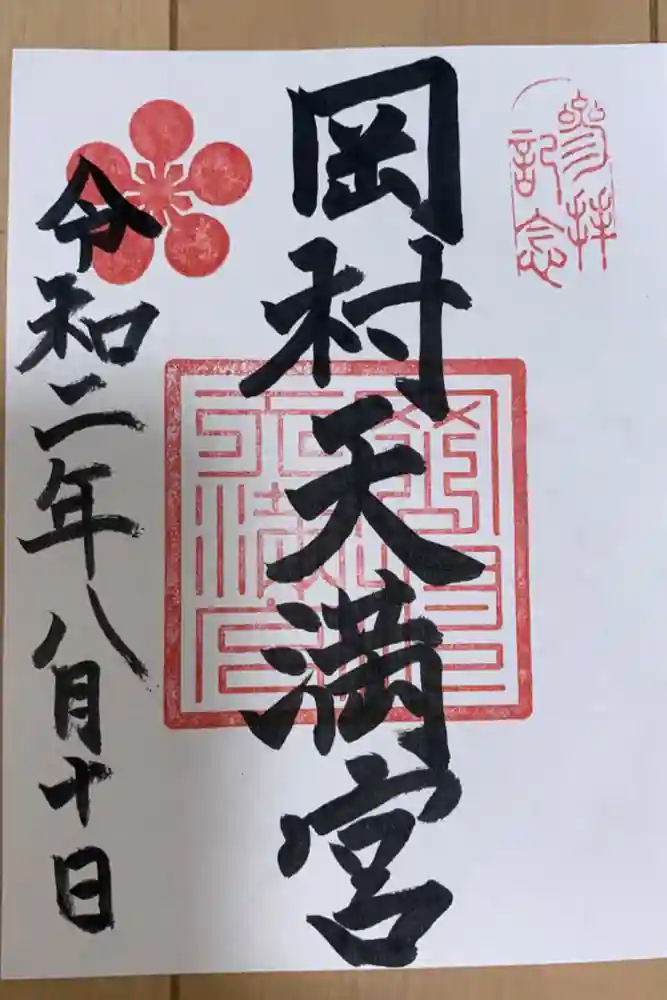 参拝
記念
岡村天満宮
令和二年八月十日